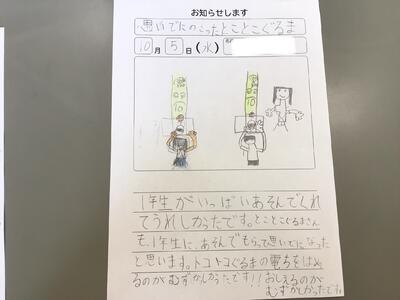 お知らせします
思いでにのこったとことこぐるま
10月5日(水)
1年生がいっぱいあそんでくれ
てうれしかったです。とことこぐるまさん
も、1年生に、あそんでもらって思いでになった
と思います。トコトコぐるまの電ちをはめ
るのがむずかしかったです!!おしえるのが
むずかしかったです。